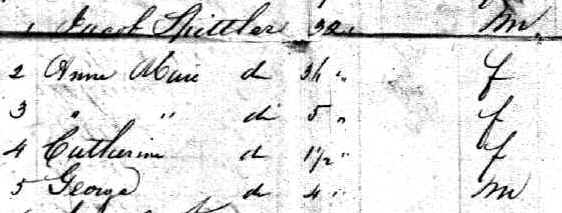 1 Jacob Spittler 32 " m.
2 Anna Marie do 34 " f
3 " " do 5 " f
4 Catherine do 1 1/2 " f
5 George do 4 " m